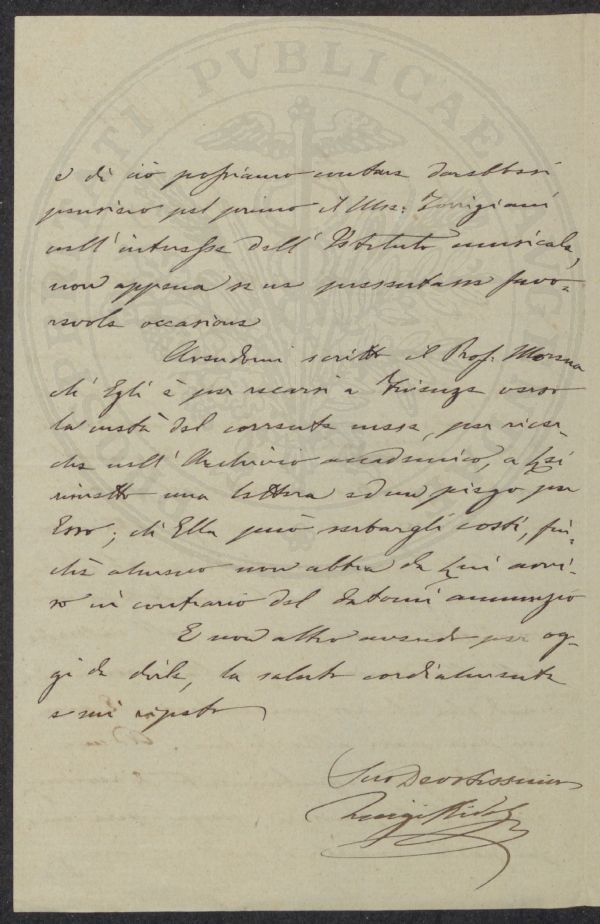 e di ciò possiamo contare darebbesi
pensiero pel primo il Mse: Torrigiani
nell'interesse dell'Istituto musicale,
non appena se ne presentasse favo=
revole occasione
Avendomi scritto il Prof. Morsen
ch'Egli è per recarsi a Firenze verso
la metà del corrente mese, per ricer=
che nell'Archivio accademico, a Lei
rimetto una lettera ed un piego per
Esso; ch'Ella può serbargli costì, fin=
chè almeno non abbia da Lui avvi=
so in contrario del datomi annunzio
E non altro avendo per og=
gi da dirle, la saluto cordialmente
e mi ripeto
Suo Devotissimo
Luigi